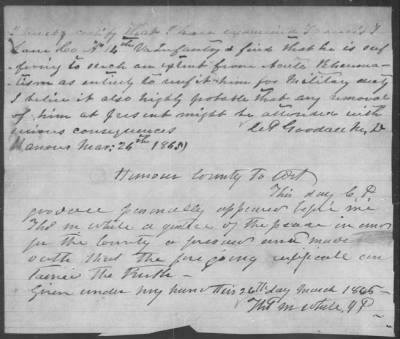 I hereby certify that I have examined Francis J
Lane Co A 4th Va Infantry & find that he is suf
fering to such an extent from Acute Rheuma-
tism as entirely to unfit him for Military duty
I believe it also highly probable that any removal
of him at present might be attended with
serious consequences
Goodall M. D
Hanover Mar: 26th 1865
Hanover County to wit
This day C. P
Goodall personally appeared before me
Thos M White a Justice of the peace in and
for the County aforesaid and made
oath that the foregoing certificate con
tains the truth -
Given under my hand this 26th day March 1865 -
Thos M White, J P